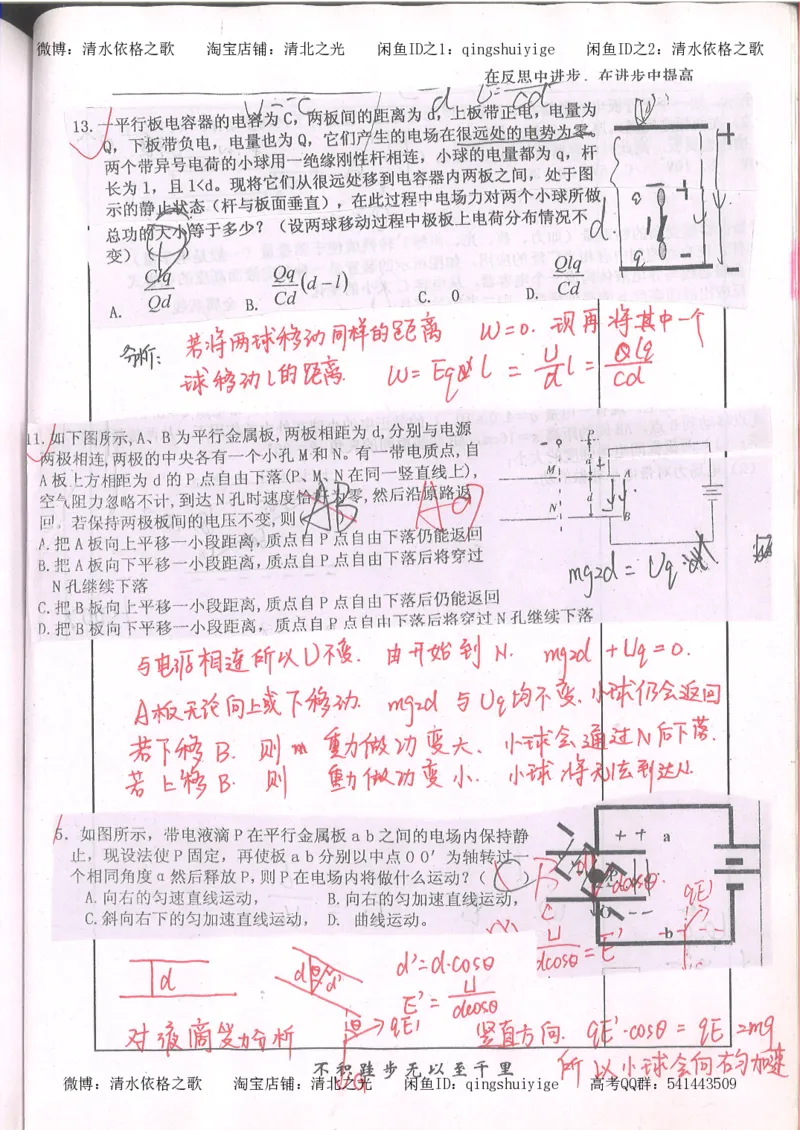 微博：清水依格之歌 淘宝店铺：清北之光 闲鱼ID之1：qingshuiyige 闲鱼ID之2：清水依格之歌
在反思中进步，在进步中提高
13.一平行板电容器的电容为 C，两板间的距离为 d，上板带正电，电量为
Q，下板带负电，电量也为 Q，它们产生的电场在很远处的电势为零。
两个带异号电荷的小球用一绝缘刚性杆相连，小球的电量都为 q，杆
长为 l，且 l<d。现将它们从很远处移到电容器内两板之间，处于图
示的静止状态（杆与板面垂直），在此过程中电场力对两个小球所做
总功的大小等于多少？（设两球移动过程中极板上电荷分布情况不
变）
A. Clq/Qd B. Qq/Cd (d－l) C. 0 D. Qlq/Cd
分析：若将两球移动同样的距离 W=0. 现再将其中一个
球移动l的距离. W=Eql = U/d l = Qlq/Cd
11.如下图所示,A、B 为平行金属板,两板相距为 d,分别与电源
两极相连,两极的中央各有一个小孔 M 和 N。有一带电质点,自
A 板上方相距为 d 的 P 点自由下落(P、M、N 在同一竖直线上),
空气阻力忽略不计,到达 N 孔时速度恰好为零,然后沿原路返
回。若保持两极板间的电压不变,则(
A.把 A 板向上平移一小段距离,质点自 P 点自由下落仍能返回
B.把 A 板向下平移一小段距离,质点自 P 点自由下落后将穿过
N 孔继续下落
C.把 B 板向上平移一小段距离,质点自 P 点自由下落后仍能返回
D.把 B 板向下平移一小段距离，质点自 P 点自由下落后将穿过 N 孔继续下落
P
M
N
B
d
mg2d = Uq
与电源相连所以U不变. 由开始到N. mg2d +Uq=0.
A板无论向上或下移动. mg2d 与Uq均不变.小球仍会返回
若下移B. 则 重力做功变大. 小球会通过N后下落.
若上移B. 则 重力做功变小. 小球将无法到达N.
5．如图所示，带电液滴 P 在平行金属板 a b 之间的电场内保持静
止，现设法使 P 固定，再使板 a b 分别以中点 O O′为轴转过一
个相同角度 α 然后释放 P,则 P 在电场内将做什么运动？( )
A.向右的匀速直线运动， B.向右的匀加速直线运动，
C.斜向右下的匀加速直线运动， D. 曲线运动。
B
a
b
dcosθ
qE′
U/dcosθ = E′
d d d′
d′=d·cosθ
E′= U/dcosθ
qE′
对液滴受力分析 竖直方向. qE′·cosθ = qE =mg
所以小球会向右匀加速
不积跬步无以至千里
微博：清水依格之歌 淘宝店铺：清北之光 闲鱼ID：qingshuiyige 高考QQ群：541443509